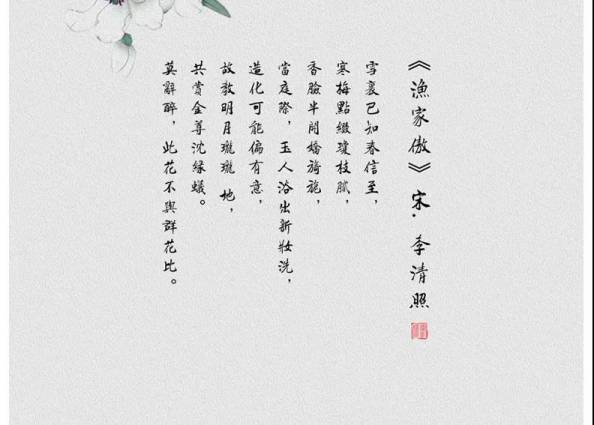 《漁家傲》宋·李清照
雪裏已知春信至，
寒梅點綴瓊枝膩，
香臉半開嬌旖旎，
當庭際，玉人浴出新妝洗，
造化可能偏有意，
故教明月瓏瓏 地，
共賞金尊沈緑蟻。
莫辭醉，此花不與群花比。